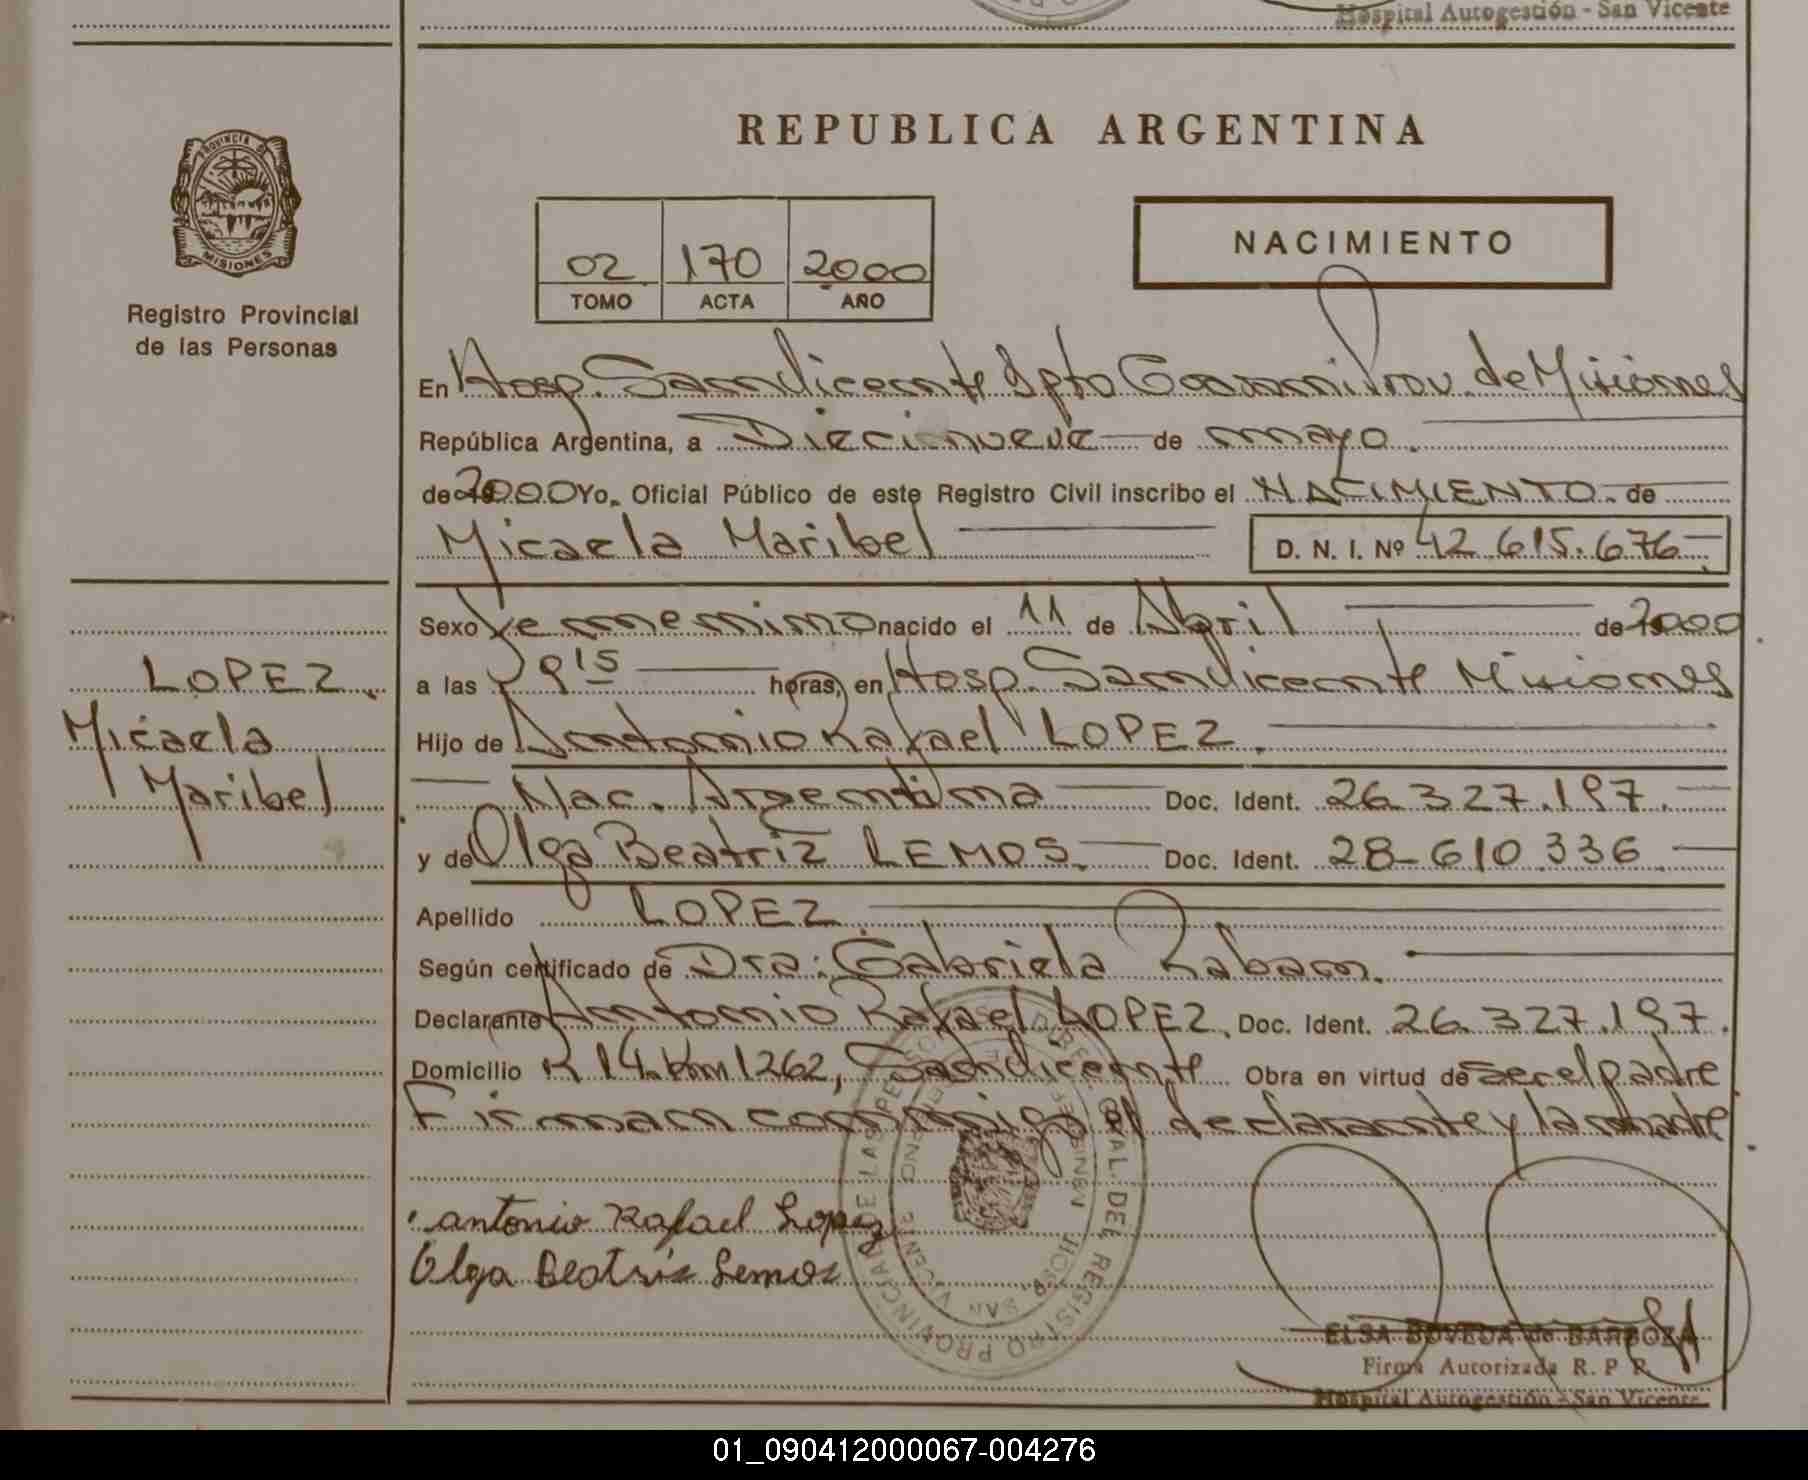 Hospital Autogestión - San Vicente
REPUBLICA ARGENTINA
PROVINCIA DE
MISIONES
Registro Provincial
de las Personas
02 170 2000
TOMO ACTA AÑO
NACIMIENTO
En Hosp. San Vicente Dpto Guaraní Prov. de Misiones
República Argentina, a Diecinueve de mayo
de 2000 Yo, Oficial Público de este Registro Civil inscribo el NACIMIENTO de
Micaela Maribel D. N. I. Nº 42.615.676
Sexo Femenino nacido el 11 de Abril de 2000
a las 9 15 horas, en Hosp. San Vicente Misiones
Hijo de Antonio Rafael LOPEZ.
Nac. Argentina Doc. Ident. 26.327.197.
y de Olga Beatriz LEMOS. Doc. Ident. 28.610.336
Apellido LOPEZ
Según certificado de Dra: Gabriela Raban.
Declarante Antonio Rafael LOPEZ. Doc. Ident. 26.327.197.
Domicilio R 14. Km 1262, San Vicente Obra en virtud de ser el padre
Firman conmigo el declarante y la madre
LOPEZ.
Micaela
Maribel
antonio Rafael Lopez
Olga Beatriz Lemos
REGISTRO PROVINCIAL DE LAS PERSONAS
SAN VICENTE
ELSA BOVEDA de BARBOZA
Firma Autorizada R. P. P.
Hospital Autogestión - San Vicente
01_090412000067-004276